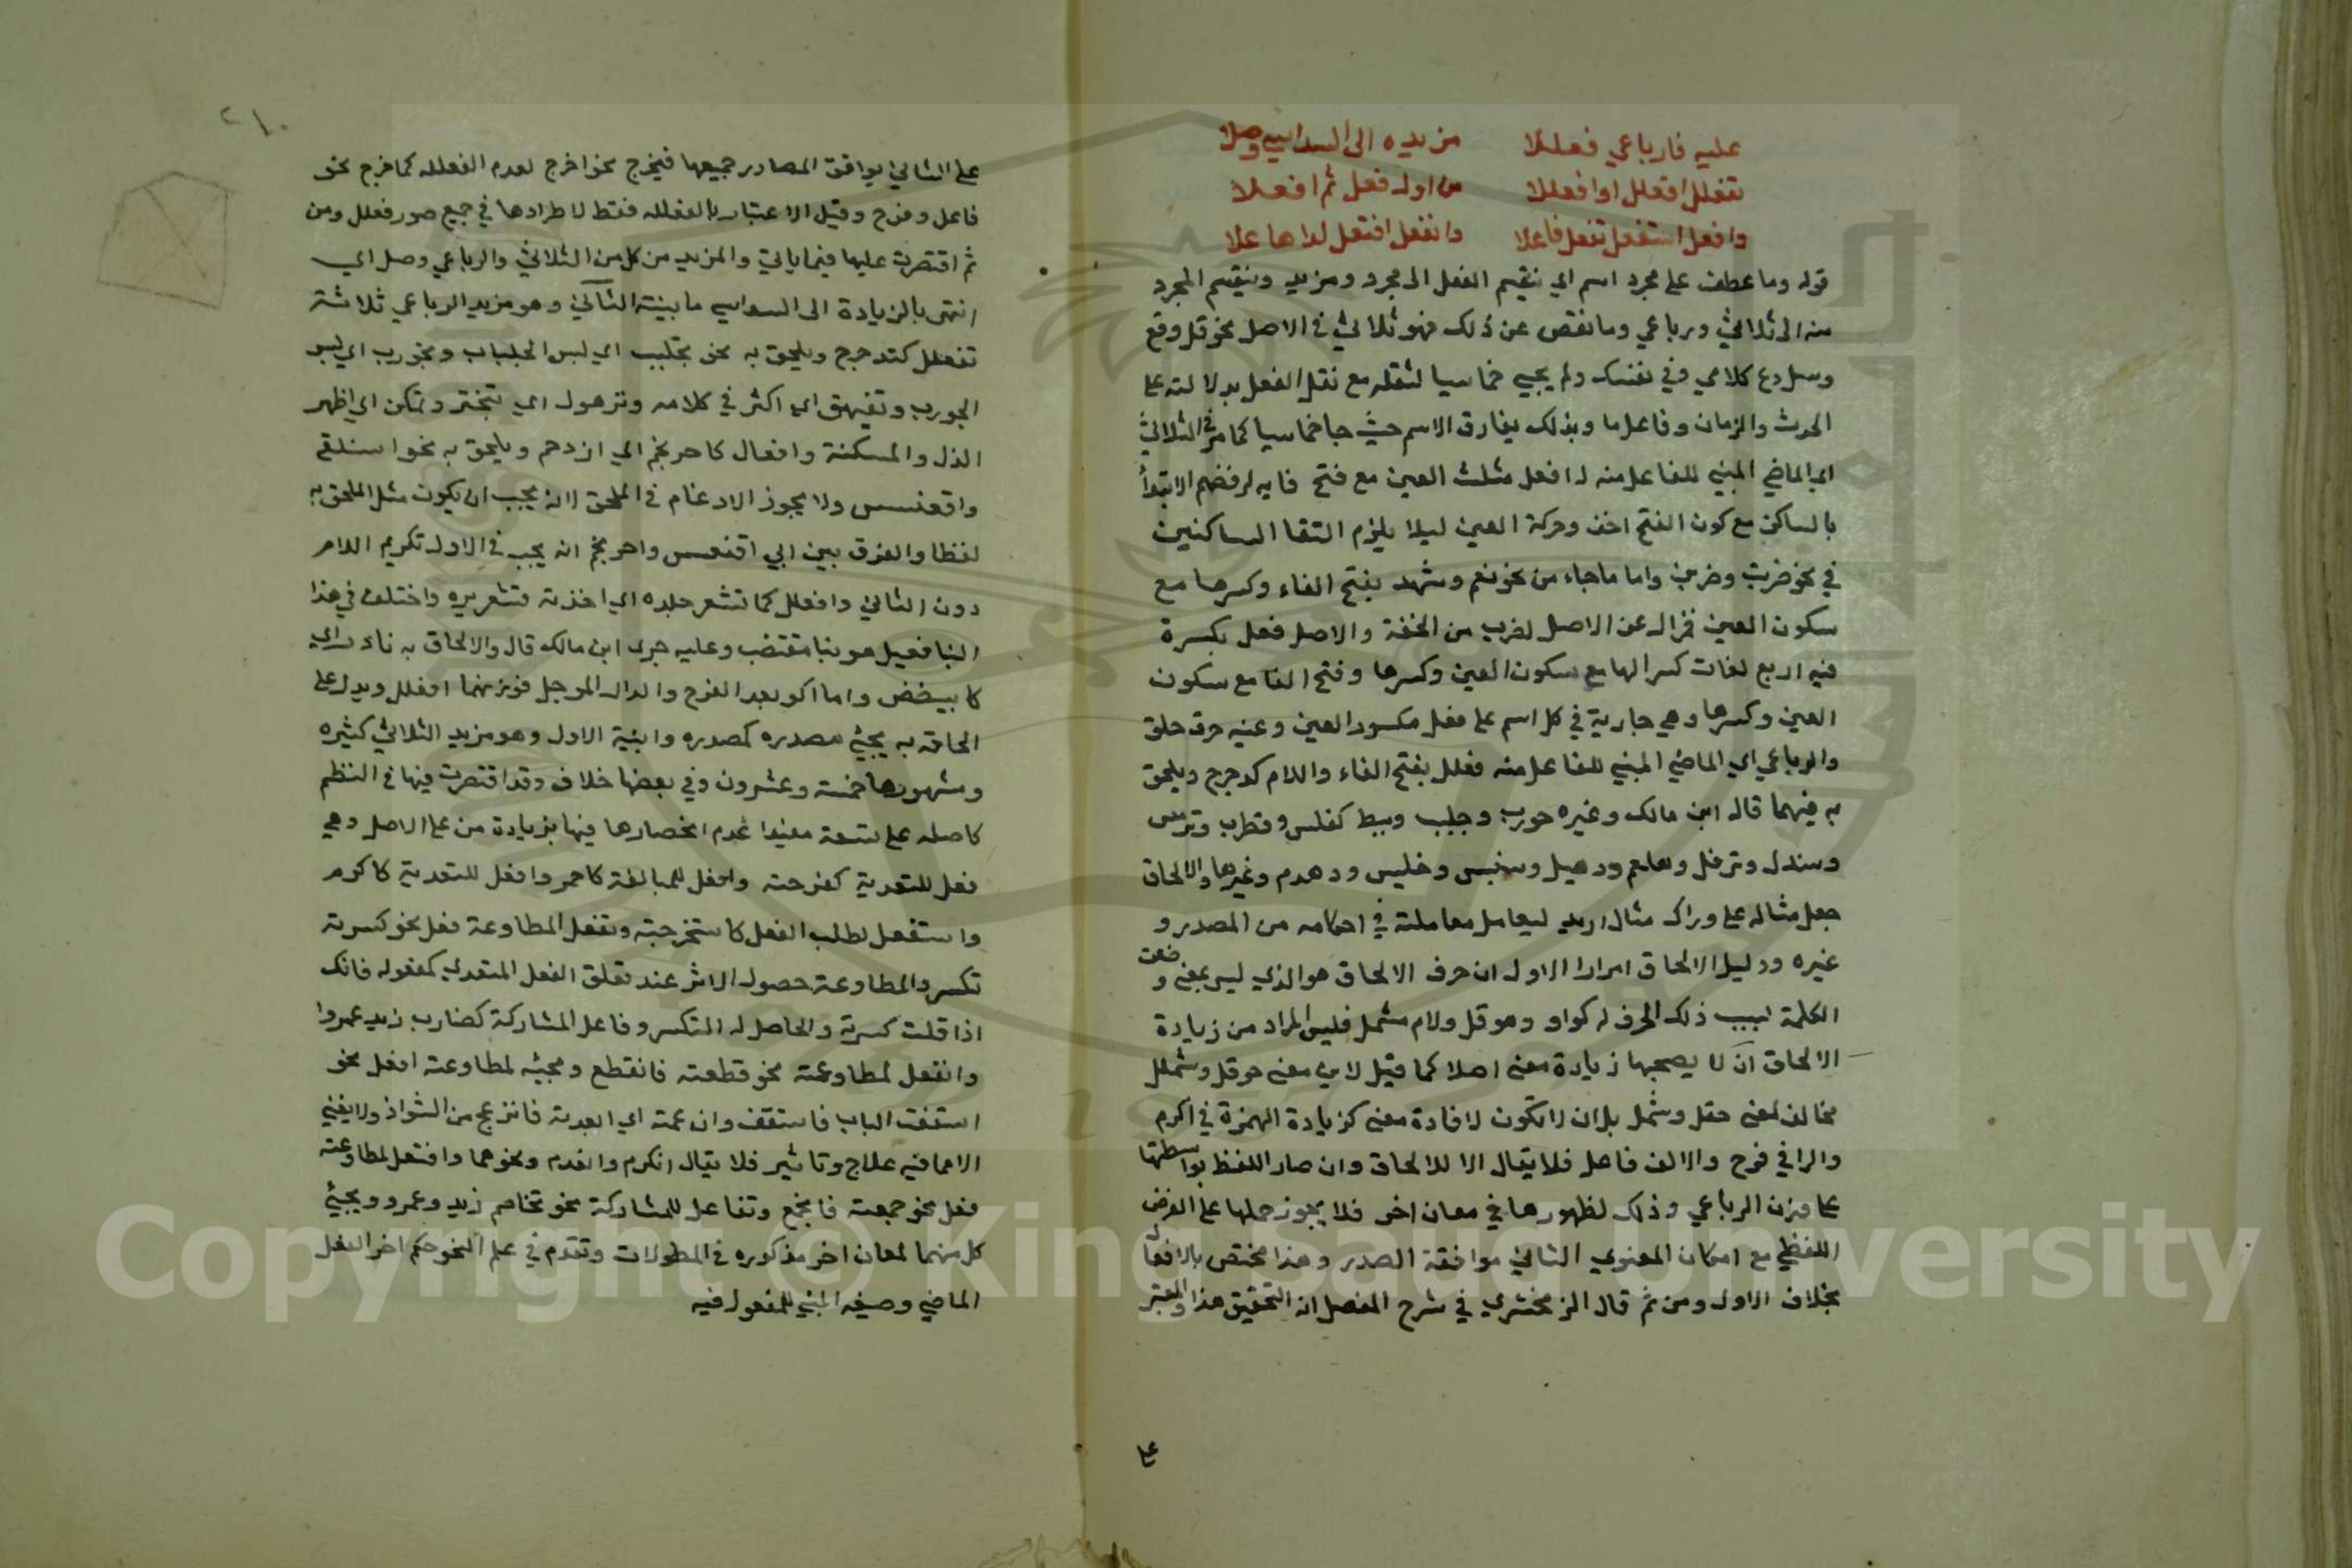 عليه فارباعي فعللا مزيده الى السداسي وصلا
تفعلل افعلل او افعللا من اول فعل ثم افعلا
وافعل استفعل تفعل فاعلا وانفعل افتعل لداها علا
قوله وما عطف على مجرد اسم اي ينقسم الفعل الى مجرد ومزيد وينقسم المجرد
منه الى ثلاثي ورباعي وما نقص عن ذلك فهو ثلاثي في الاصل نحو قل وقع
وسل ودع كلامي وفي نفسك ولم يجيء خماسيا لثقله مع نقل الفعل بدلالته على
الحدث والزمان وفاعل ما وبذلك يفارق الاسم حيث جا خماسيا كما مر في الثلاثي
اي الماضي المبني للفاعل منه له افعل مثلث العين مع فتح فايه لرفضهم الابتدأ
بالساكن مع كون الفتح اخف وحركة العين ليلا يلزم التقا الساكنين
في نحو ضربت وضربن واما ماجاء من نحو نعم وشهد بفتح الفاء وكسرها مع
سكون العين فمزال عن الاصل لضرب من الخفة والاصل فعل بكسرة
فيه اربع لغات كسر الها مع سكون العين وكسرها وفتح الفا مع سكون
العين وكسرها وهي جارية في كل اسم على فعل مكسور العين وعينه حرف حلق
والرباعي اي الماضي المبني للفاعل منه فعلل بفتح الفاء واللام كدحرج ويلحق
به فيهما قال ابن مالك وغيره جورب وجلبب وبيطر كقلس وقطرب وترمس
وسندل وترفل وهلهم ودهبل وسنبس وخلبس ودهدم وغيرها والالحاق
جعل مثال على وزان مثال ازيد ليعامل معاملته في احكامه من المصدر و
غيره ودليل الالحاق امران الاول ان حرف الالحاق هو الذي ليس بمعنى و ضعت
الكلمة لسبب ذلك الحرف له كواو وهو قل ولام شملل فليس المراد من زيادة
الالحاق ان لا يصحبها زيادة معنى اصلا كما قيل لان معنى حوقل وشملل
مخالف لمعنى حقل وشمل بل ان لا تكون لافادة معنى كزيادة الهمزة في اكرم
والرا في فرح والالف فاعل فلا يقال الا للالحاق وان صار اللفظ بواسطتها
على وزن الرباعي وذلك لظهورها في معان اخر فلا يجوز حملها على الغرض
اللفظي مع امكان المعنوي الثاني موافقة المصدر وهذا مختص بالافعال
بخلاف الاول ومن ثم قال الزمخشري في شرح المفصل انه التحقيق هذا والمعتبر
على
٢١٠
على الثاني توافق المصادر جميعها فيخرج نحو اخرج لعدم الفعلله كما خرج نحو
فاعل وفرح وقيل الاعتبار بالفعلله فقط لاطرادها في جميع صور فعلل ومن
ثم اقتصرت عليها فيما ياتي والمزيد من كل من الثلاثي والرباعي وصل اي
انتهى بالزيادة الى السداسي ما بينته الثاني وهو مزيد الرباعي ثلاثة
تفعلل كتدحرج ويلحق به نحو تجلبب اي لبس الجلباب وتجورب اي لبس
الجورب وتفيهق اي اكثر في كلامه وترهول اي تبختر وتمكن اي اظهر
الذل والمسكنة وافعال كاحرنجم اي ازدحم ويلحق به نحو اسلنقى
واقعنسس ولا يجوز الادغام في الملحق لانه يجب ان يكون مثل الملحق به
لفظا والفرق بين ابي اقعنسس واحرنجم انه يجب في الاول تكرير اللام
دون الثاني وافعلل كما تشعر جلده اي اخذته قشعريره واختلف في هذا
البنا فقيل هو بنا مقتضب وعليه جرى ابن مالك قال والالحاق به نادر اي
كابيضض واما اكوهد الفرخ والدال الموجل فوزنهما افعلل ويدل على
الحاقه به يجيء مصدره كمصدره وابنية الاول وهو مزيد الثلاثي كثيره
ومشهورها خمسة وعشرون وفي بعضها خلاف وقد اقتصرت فيها في النظم
كاصله على تسعة مفيدا عدم انحصارها فيها بزيادة من على الاصل وهي
فعل للتعدية كفرحته وافعل للمبالغة كاحمر وافعل للتعدية كاكرم
واستفعل لطلب الفعل كاستخرجته وتفعل المطاوعة فعل نحو كسرته
تكسر والمطاوعة حصول الاثر عند تعلق الفعل المتعدي كمفعوله فانك
اذا قلت كسرته والحاصل له التكسر وفاعل المشاركة كضارب زيد عمروا
وانفعل لمطاوعته نحو قطعته فانقطع ومجيئه لمطاوعته افعل نحو
اسقفت الباب فاستقف وازعجته اي ابعدته فانزعج من الشواذ ولا يغني
الا مما فيه علاج وتاثير فلا يقال انكرم وانعدم ونحوهما وافتعل لمطاوعته
فعل نحو جمعته فاجتمع وتفاعل للمشاركة نحو تخاصم زيد وعمرو ويجيء
كل منهما لمعان اخر مذكوره في المطولات وتقدم في علم النحو حكم اخر الفعل
الماضي وصيغه المبني للمفعول فيه
Copyright © King Saud University